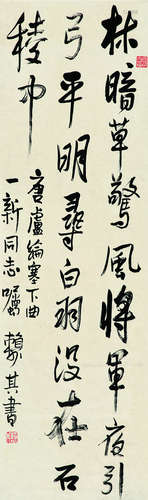 林暗草驚風將軍夜引
弓平明尋白羽没在石
稜中
唐盧綸塞下曲
一新同志囑 賴其書